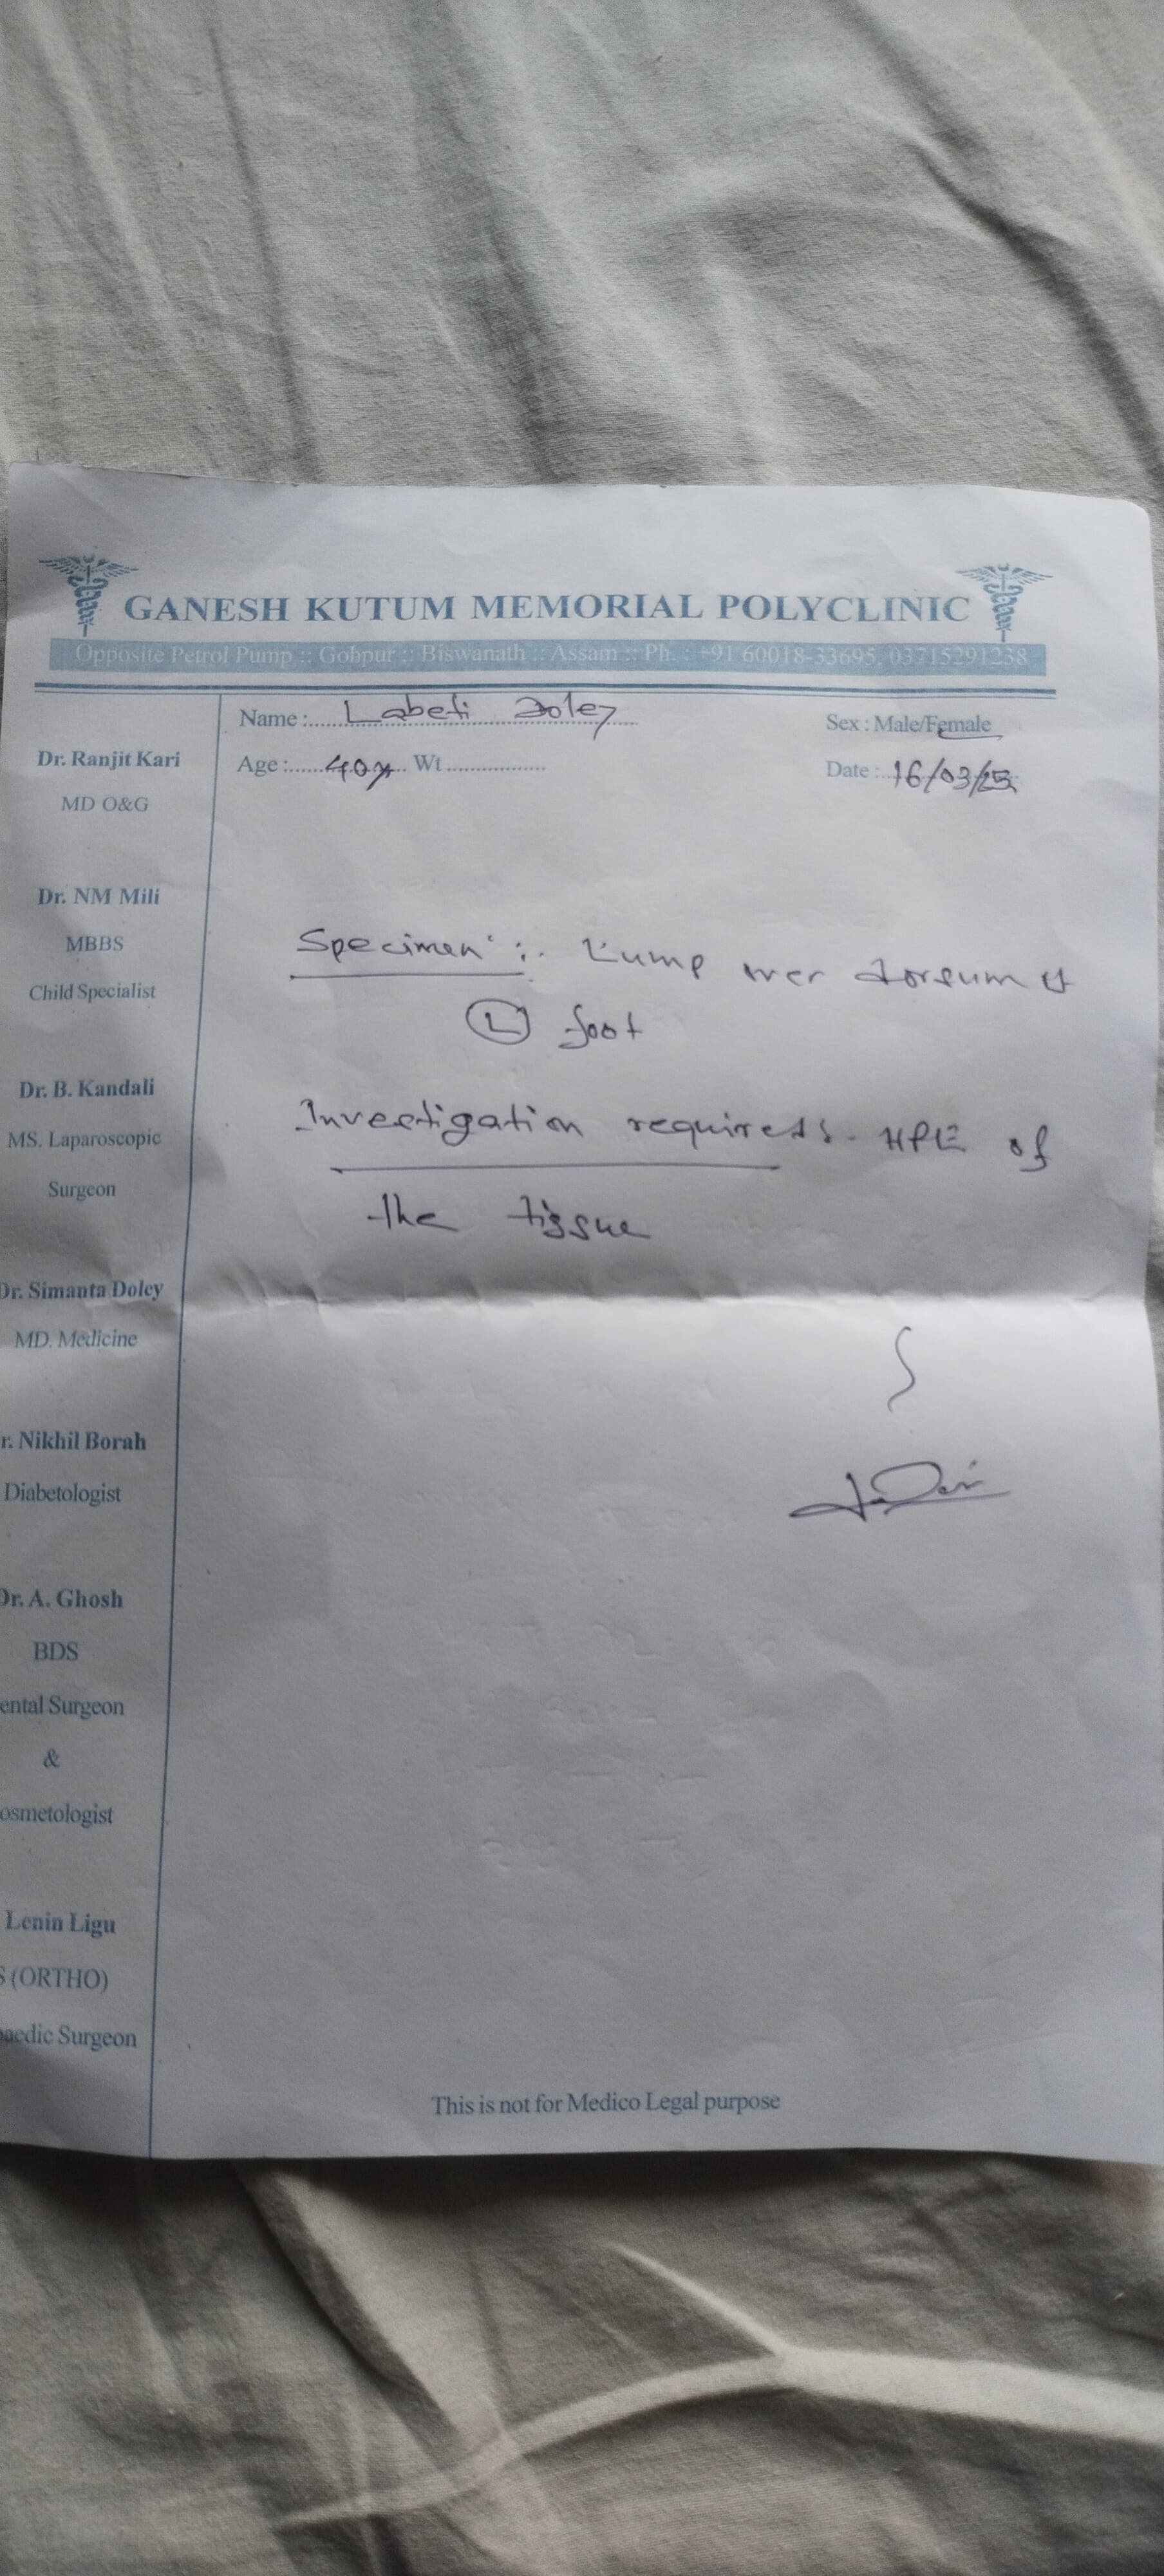 GANESH KUTUM MEMORIAL POLYCLINIC
Opposite Petrol Pump :: Gohpur :: Biswanath :: Assam :: Ph. : +91 60018-33695, 03715291238
Name : Labeti Doley
Sex : Male/Female
Age : 40y Wt
Date : 16/03/25
Dr. Ranjit Kari
MD O&G
Dr. NM Mili
MBBS
Child Specialist
Dr. B. Kandali
MS. Laparoscopic
Surgeon
Dr. Simanta Doley
MD. Medicine
r. Nikhil Borah
Diabetologist
Dr. A. Ghosh
BDS
ental Surgeon
&
osmetologist
Lenin Ligu
S (ORTHO)
paedic Surgeon
Specimen :- Lump over dorsum of
(L) foot
Investigation required - HPE of
the tissue
This is not for Medico Legal purpose